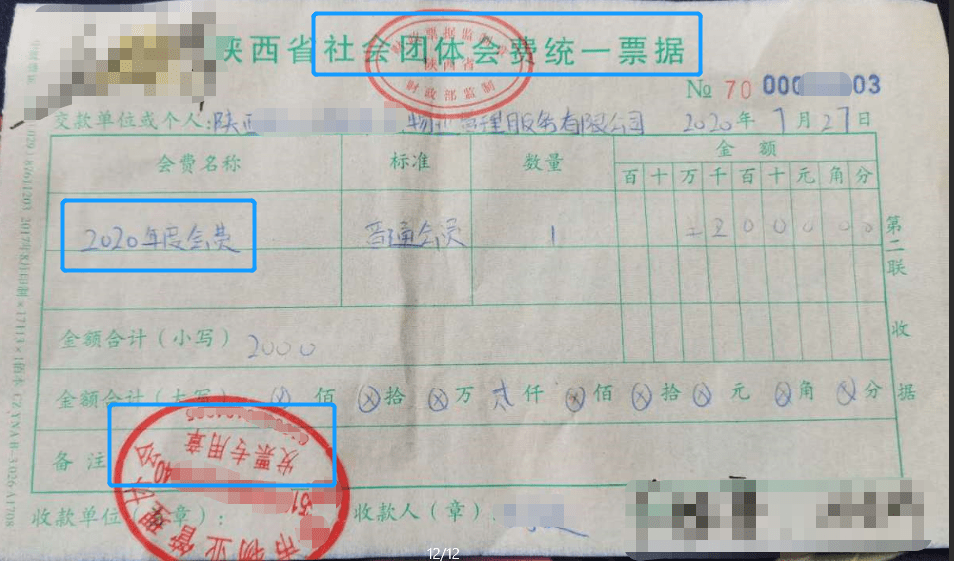 陕西省社会团体会费统一票据
财政票据监制章
陕西省
财政部监制
№ 70 000 03
交款单位或个人:陕西 物业管理服务有限公司 2020年7月27日
会费名称 标准 数量 金额
百 十 万 千 百 十 元 角 分
2020年度会费 普通会员 1 2 0 0 0 0 0
金额合计(小写) 2000
金额合计(大写) ⊗ 佰 ⊗ 拾 ⊗ 万 贰 仟 ⊗ 佰 ⊗ 拾 ⊗ 元 ⊗ 角 ⊗ 分
备注
收款单位(章): 收款人(章):
第二联 收据
发票专用章
市物业管理协会
12/12